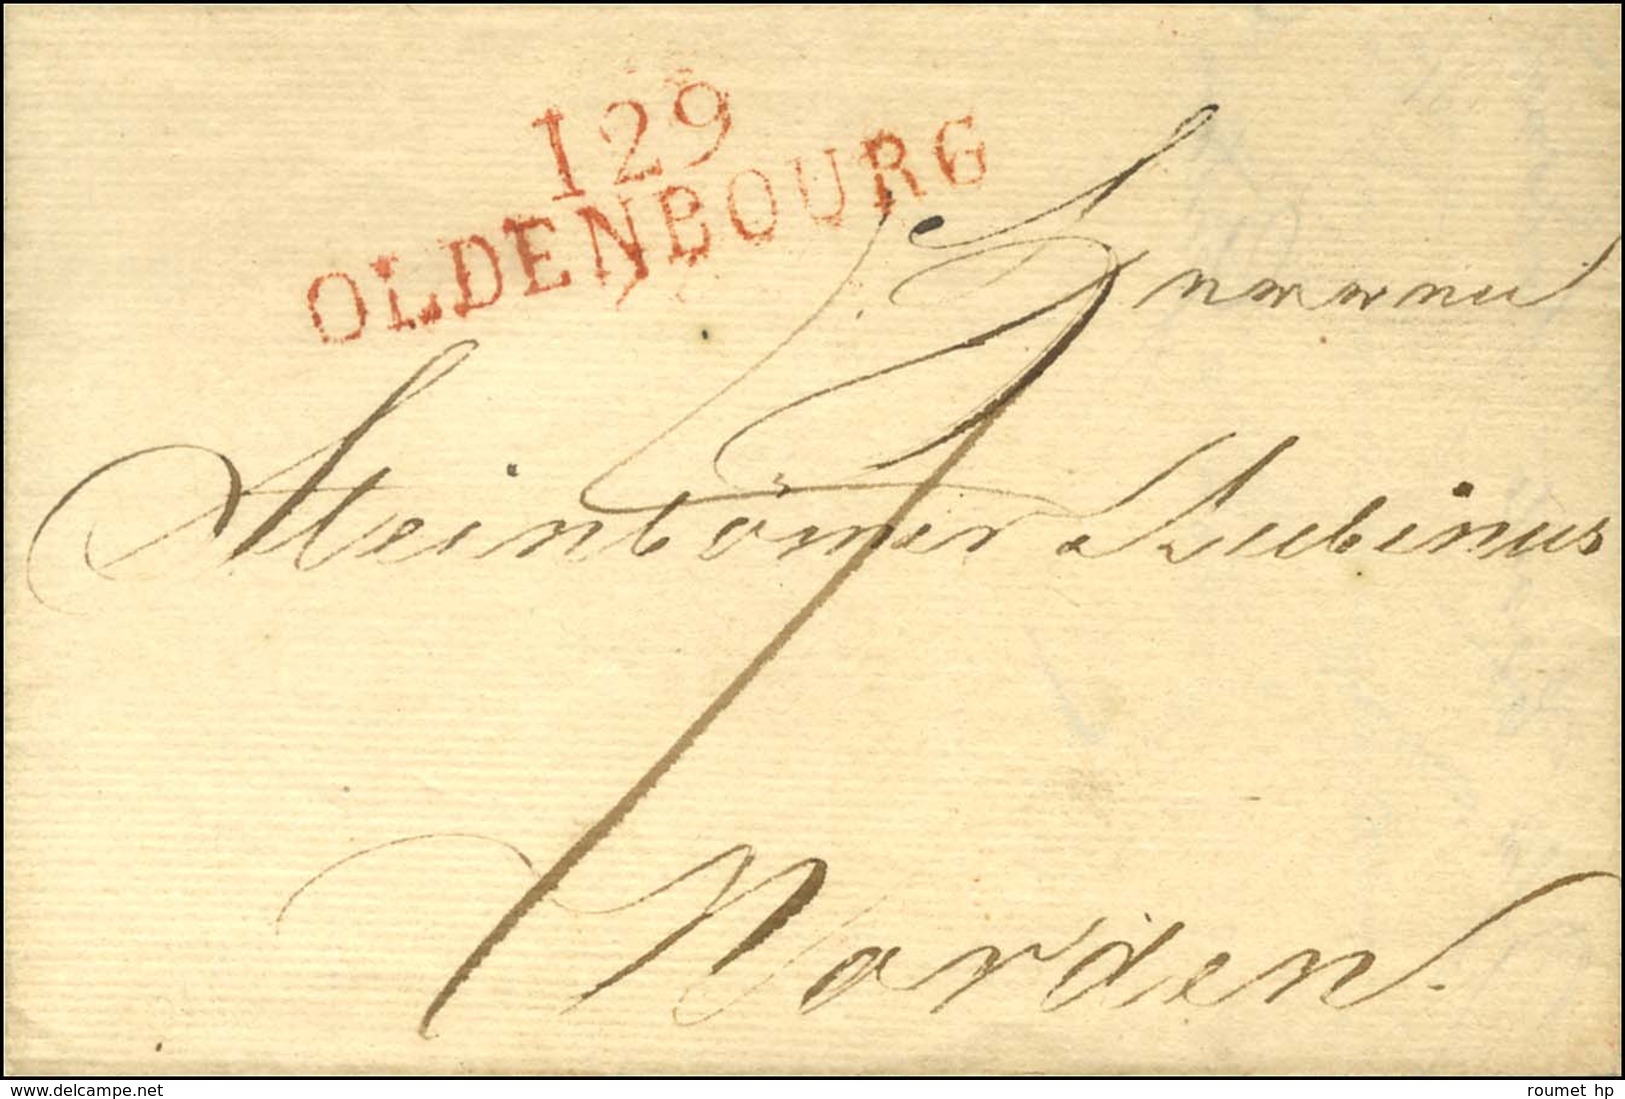 129
OLDENBOURG
Steinbömer & Lubinus
Norden.
www.delcampe.net
roumet hp